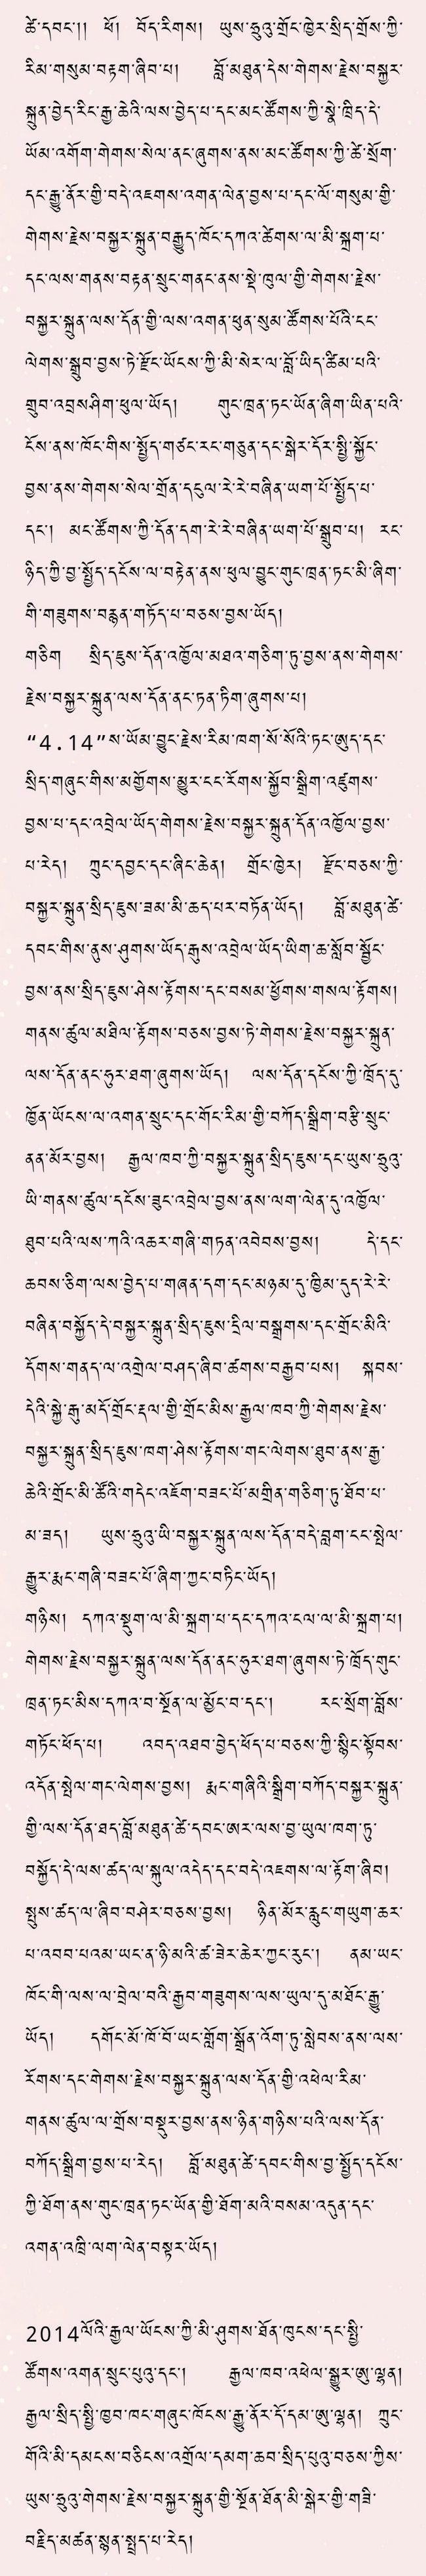 ཚེ་དབང་།། ཕོ། བོད་རིགས། ཡུས་ཧྲུའུ་གྲོང་ཁྱེར་སྲིད་གྲོས་ཀྱི་
རིམ་གསུམ་བརྟག་ཞིབ་པ། བློ་མཐུན་དེས་གེགས་རྗེས་བསྐྱར་
སྐྲུན་བྱེད་རིང་རྒྱ་ཆེའི་ལས་བྱེད་པ་དང་མང་ཚོགས་ཀྱི་སྣེ་ཁྲིད་དེ་
ཡོམ་འགོག་གེགས་སེལ་ནང་ཞུགས་ནས་མང་ཚོགས་ཀྱི་ཚེ་སྲོག་
དང་རྒྱུ་ནོར་གྱི་བདེ་འཇགས་འགན་ལེན་བྱས་པ་དང་ལོ་གསུམ་གྱི་
གེགས་རྗེས་བསྐྱར་སྐྲུན་བརྒྱུད་ཁོང་དཀའ་ཚེགས་ལ་མི་སྐྲག་པ་
དང་ལས་གནས་བརྟན་སྲུང་གནང་ནས་སྡེ་ཁུལ་གྱི་གེགས་རྗེས་
བསྐྱར་སྐྲུན་ལས་དོན་གྱི་ལས་འགན་ཕུན་སུམ་ཚོགས་པོའི་ངང་
ལེགས་སྒྲུབ་བྱས་ཏེ་རྫོང་ཡོངས་ཀྱི་མི་སེར་ལ་བློ་ཡིད་ཚིམ་པའི་
གྲུབ་འབྲས་ཤིག་ཕུལ་ཡོད། གུང་ཁྲན་ཏང་ཡོན་ཞིག་ཡིན་པའི་
ངོས་ནས་ཁོང་གིས་སྤྱོད་གཙང་རང་གཅུན་དང་སྒེར་དོར་སྤྱི་སྐྱོང་
བྱས་ནས་གེགས་སེལ་གྲོན་དངུལ་རེ་རེ་བཞིན་ཡག་པོ་སྤྱོད་པ་
དང་། མང་ཚོགས་ཀྱི་དོན་དག་རེ་རེ་བཞིན་ཡག་པོ་སྒྲུབ་པ། རང་
ཉིད་ཀྱི་བྱ་སྤྱོད་དངོས་ལ་བརྟེན་ནས་ཕུལ་བྱུང་གུང་ཁྲན་ཏང་མི་ཞིག་
གི་གཟུགས་བརྙན་གཏོད་པ་བཅས་བྱས་ཡོད།
གཅིག སྲིད་ཇུས་དོན་འཁྱོལ་མཐའ་གཅིག་ཏུ་བྱས་ནས་གེགས་
རྗེས་བསྐྱར་སྐྲུན་ལས་དོན་ནང་ཏན་ཏིག་ཞུགས་པ།
“4.14”ས་ཡོམ་བྱུང་རྗེས་རིམ་ཁག་སོ་སོའི་ཏང་ཨུད་དང་
སྲིད་གཞུང་གིས་མགྱོགས་མྱུར་ངང་རོགས་སྐྱོབ་སྒྲིག་འཛུགས་
བྱས་པ་དང་འབྲེལ་ཡོད་གེགས་རྗེས་བསྐྱར་སྐྲུན་དོན་འཁྱོལ་བྱས་
པ་རེད། ཀྲུང་དབྱང་དང་ཞིང་ཆེན། གྲོང་ཁྱེར། རྫོང་བཅས་ཀྱི་
བསྐྱར་སྐྲུན་སྲིད་ཇུས་ཟམ་མི་ཆད་པར་བཏོན་ཡོད། བློ་མཐུན་ཚེ་
དབང་གིས་ནུས་ཤུགས་ཡོད་རྒུས་འབྲེལ་ཡོད་ཡིག་ཆ་སློབ་སྦྱོང་
བྱས་ནས་སྲིད་ཇུས་ཤེས་རྟོགས་དང་བསམ་ཕྱོགས་གསལ་རྟོགས།
གནས་ཚུལ་མཐིལ་རྟོགས་བཅས་བྱས་ཏེ་གེགས་རྗེས་བསྐྱར་སྐྲུན་
ལས་དོན་ནང་ཧུར་ཐག་ཞུགས་ཡོད། ལས་དོན་དངོས་ཀྱི་ཁྲོད་དུ་
ཁྱོན་ཡོངས་ལ་འགན་སྲུང་དང་གོང་རིམ་གྱི་བཀོད་སྒྲིག་བརྩི་སྲུང་
ནན་མོར་བྱས། རྒྱལ་ཁབ་ཀྱི་བསྐྱར་སྐྲུན་སྲིད་ཇུས་དང་ཡུས་ཧྲུའུ་
ཡི་གནས་ཚུལ་དངོས་ཟུང་འབྲེལ་བྱས་ནས་ལག་ལེན་དུ་འཁྱོལ་
ཐུབ་པའི་ལས་ཀའི་འཆར་གཞི་གཏན་འབེབས་བྱས། དེ་དང་
ཆབས་ཅིག་ལས་བྱེད་པ་གཞན་དག་དང་མཉམ་དུ་ཁྱིམ་དུད་རེ་རེ་
བཞིན་བསྐྱོད་དེ་བསྐྱར་སྐྲུན་སྲིད་ཇུས་དྲིལ་བསྒྲགས་དང་གྲོང་མིའི་
དོགས་གནད་ལ་འགྲེལ་བཤད་ཞིབ་ཚགས་བརྒྱབ་པས། སྐབས་
དེའི་སྐྱེ་རྒུ་མདོ་གྲོང་རྡལ་གྱི་གྲོང་མིས་རྒྱལ་ཁབ་ཀྱི་གེགས་རྗེས་
བསྐྱར་སྐྲུན་སྲིད་ཇུས་ཁག་ཤེས་རྟོགས་གང་ལེགས་ཐུབ་ནས་རྒྱ་
ཆེའི་གྲོང་མི་ཚོའི་གདེང་འཇོག་བཟང་པོ་མགྲིན་གཅིག་ཏུ་ཐོབ་པ་
མ་ཟད། ཡུས་ཧྲུའུ་ཡི་བསྐྱར་སྐྲུན་ལས་དོན་བདེ་བླག་ངང་སྤེལ་
རྒྱུར་རྨང་གཞི་བཟང་པོ་ཞིག་ཀྱང་བཏིང་ཡོད།
གཉིས། དཀའ་སྡུག་ལ་མི་སྐྲག་པ་དང་དཀའ་ངལ་ལ་མི་སྐྲག་པ།
གེགས་རྗེས་བསྐྱར་སྐྲུན་ལས་དོན་ནང་ཧུར་ཐག་ཞུགས་ཏེ་ཁྲོད་གུང་
ཁྲན་ཏང་མིས་དཀའ་བ་སྔོན་ལ་མྱོང་བ་དང་། རང་སྲོག་བློས་
གཏོང་ཕོད་པ། འབད་འཐབ་བྱེད་ཕོད་པ་བཅས་ཀྱི་སྙིང་སྟོབས་
འདོན་སྤེལ་གང་ལེགས་བྱས། རྨང་གཞིའི་སྒྲིག་བཀོད་བསྐྱར་སྐྲུན་
གྱི་ལས་དོན་ཐད་བློ་མཐུན་ཚེ་དབང་ཨར་ལས་བྱ་ཡུལ་ཁག་ཏུ་
བསྐྱོད་དེ་ལས་ཚད་ལ་སྐུལ་འདེད་དང་བདེ་འཇགས་ལ་རྟོག་ཞིབ།
སྤུས་ཚད་ལ་ཞིབ་བཤེར་བཅས་བྱས། ཉིན་མོར་རླུང་གཡུག་ཆར་
པ་འབབ་པའམ་ཡང་ན་ཉི་མའི་ཚ་ཟེར་ཆེར་ཀྱང་རུང་། ནམ་ཡང་
ཁོང་གི་ལས་ལ་བྲེལ་བའི་རྒྱབ་གཟུགས་ལས་ཡུལ་དུ་མཐོང་རྒྱུ་
ཡོད། དགོང་མོ་ཁོ་བོ་ཡང་གློག་སྒྲོན་འོག་ཏུ་སླེབས་ནས་ལས་
རོགས་དང་གེགས་རྗེས་བསྐྱར་སྐྲུན་ལས་དོན་གྱི་འཕེལ་རིམ་
གནས་ཚུལ་ལ་གྲོས་བསྡུར་བྱས་ནས་ཉིན་གཉིས་པའི་ལས་དོན་
བཀོད་སྒྲིག་བྱས་པ་རེད། བློ་མཐུན་ཚེ་དབང་གིས་བྱ་སྤྱོད་དངོས་
ཀྱི་ཐོག་ནས་གུང་ཁྲན་ཏང་ཡོན་གྱི་ཐོག་མའི་བསམ་འདུན་དང་
འགན་འཁྲི་ལག་ལེན་བསྟར་ཡོད།
2014ལོའི་རྒྱལ་ཡོངས་ཀྱི་མི་ཤུགས་ཐོན་ཁུངས་དང་སྤྱི་
ཚོགས་འགན་སྲུང་པུའུ་དང་། རྒྱལ་ཁབ་འཕེལ་སྒྱུར་ཨུ་ལྷན།
རྒྱལ་སྲིད་སྤྱི་ཁྱབ་ཁང་གཞུང་ཁོངས་རྒྱུ་ནོར་དོ་དམ་ཨུ་ལྷན། ཀྲུང་
གོའི་མི་དམངས་བཅིངས་འགྲོལ་དམག་ཆབ་སྲིད་པུའུ་བཅས་ཀྱིས་
ཡུས་ཧྲུའུ་གེགས་རྗེས་བསྐྱར་སྐྲུན་གྱི་སྔོན་ཐོན་མི་སྒེར་གྱི་གཟི་
བརྗིད་མཚན་སྙན་སྤྲད་པ་རེད།